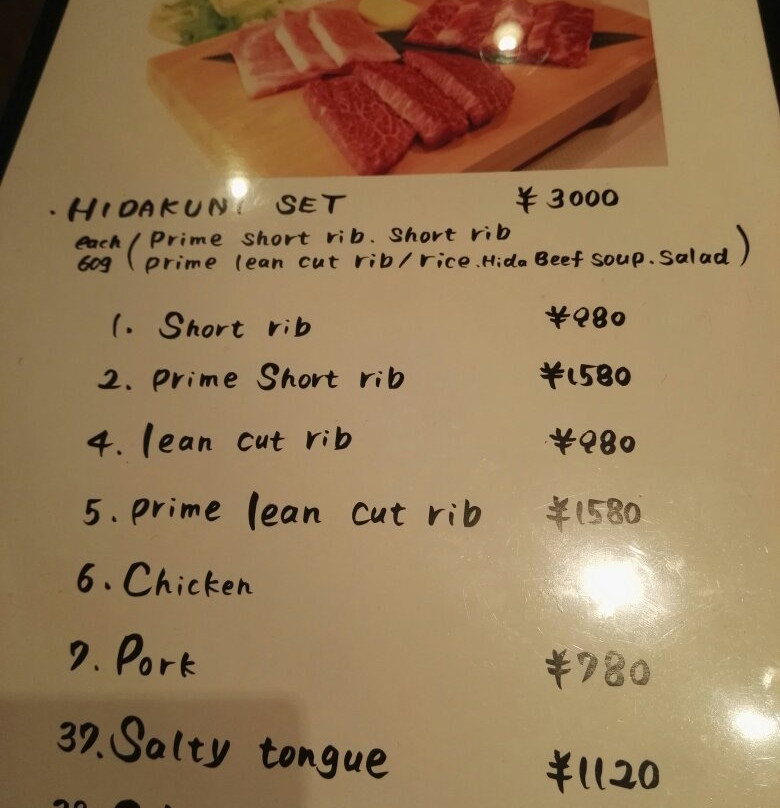 · HIDAKUNI SET ¥ 3000
each 60g ( Prime Short rib. Short rib
prime lean cut rib/rice.Hida Beef soup.Salad )
1. Short rib ¥980
2. prime Short rib ¥1580
4. lean cut rib ¥980
5. prime lean cut rib ¥1580
6. Chicken
7. Pork ¥780
37. Salty tongue ¥1120